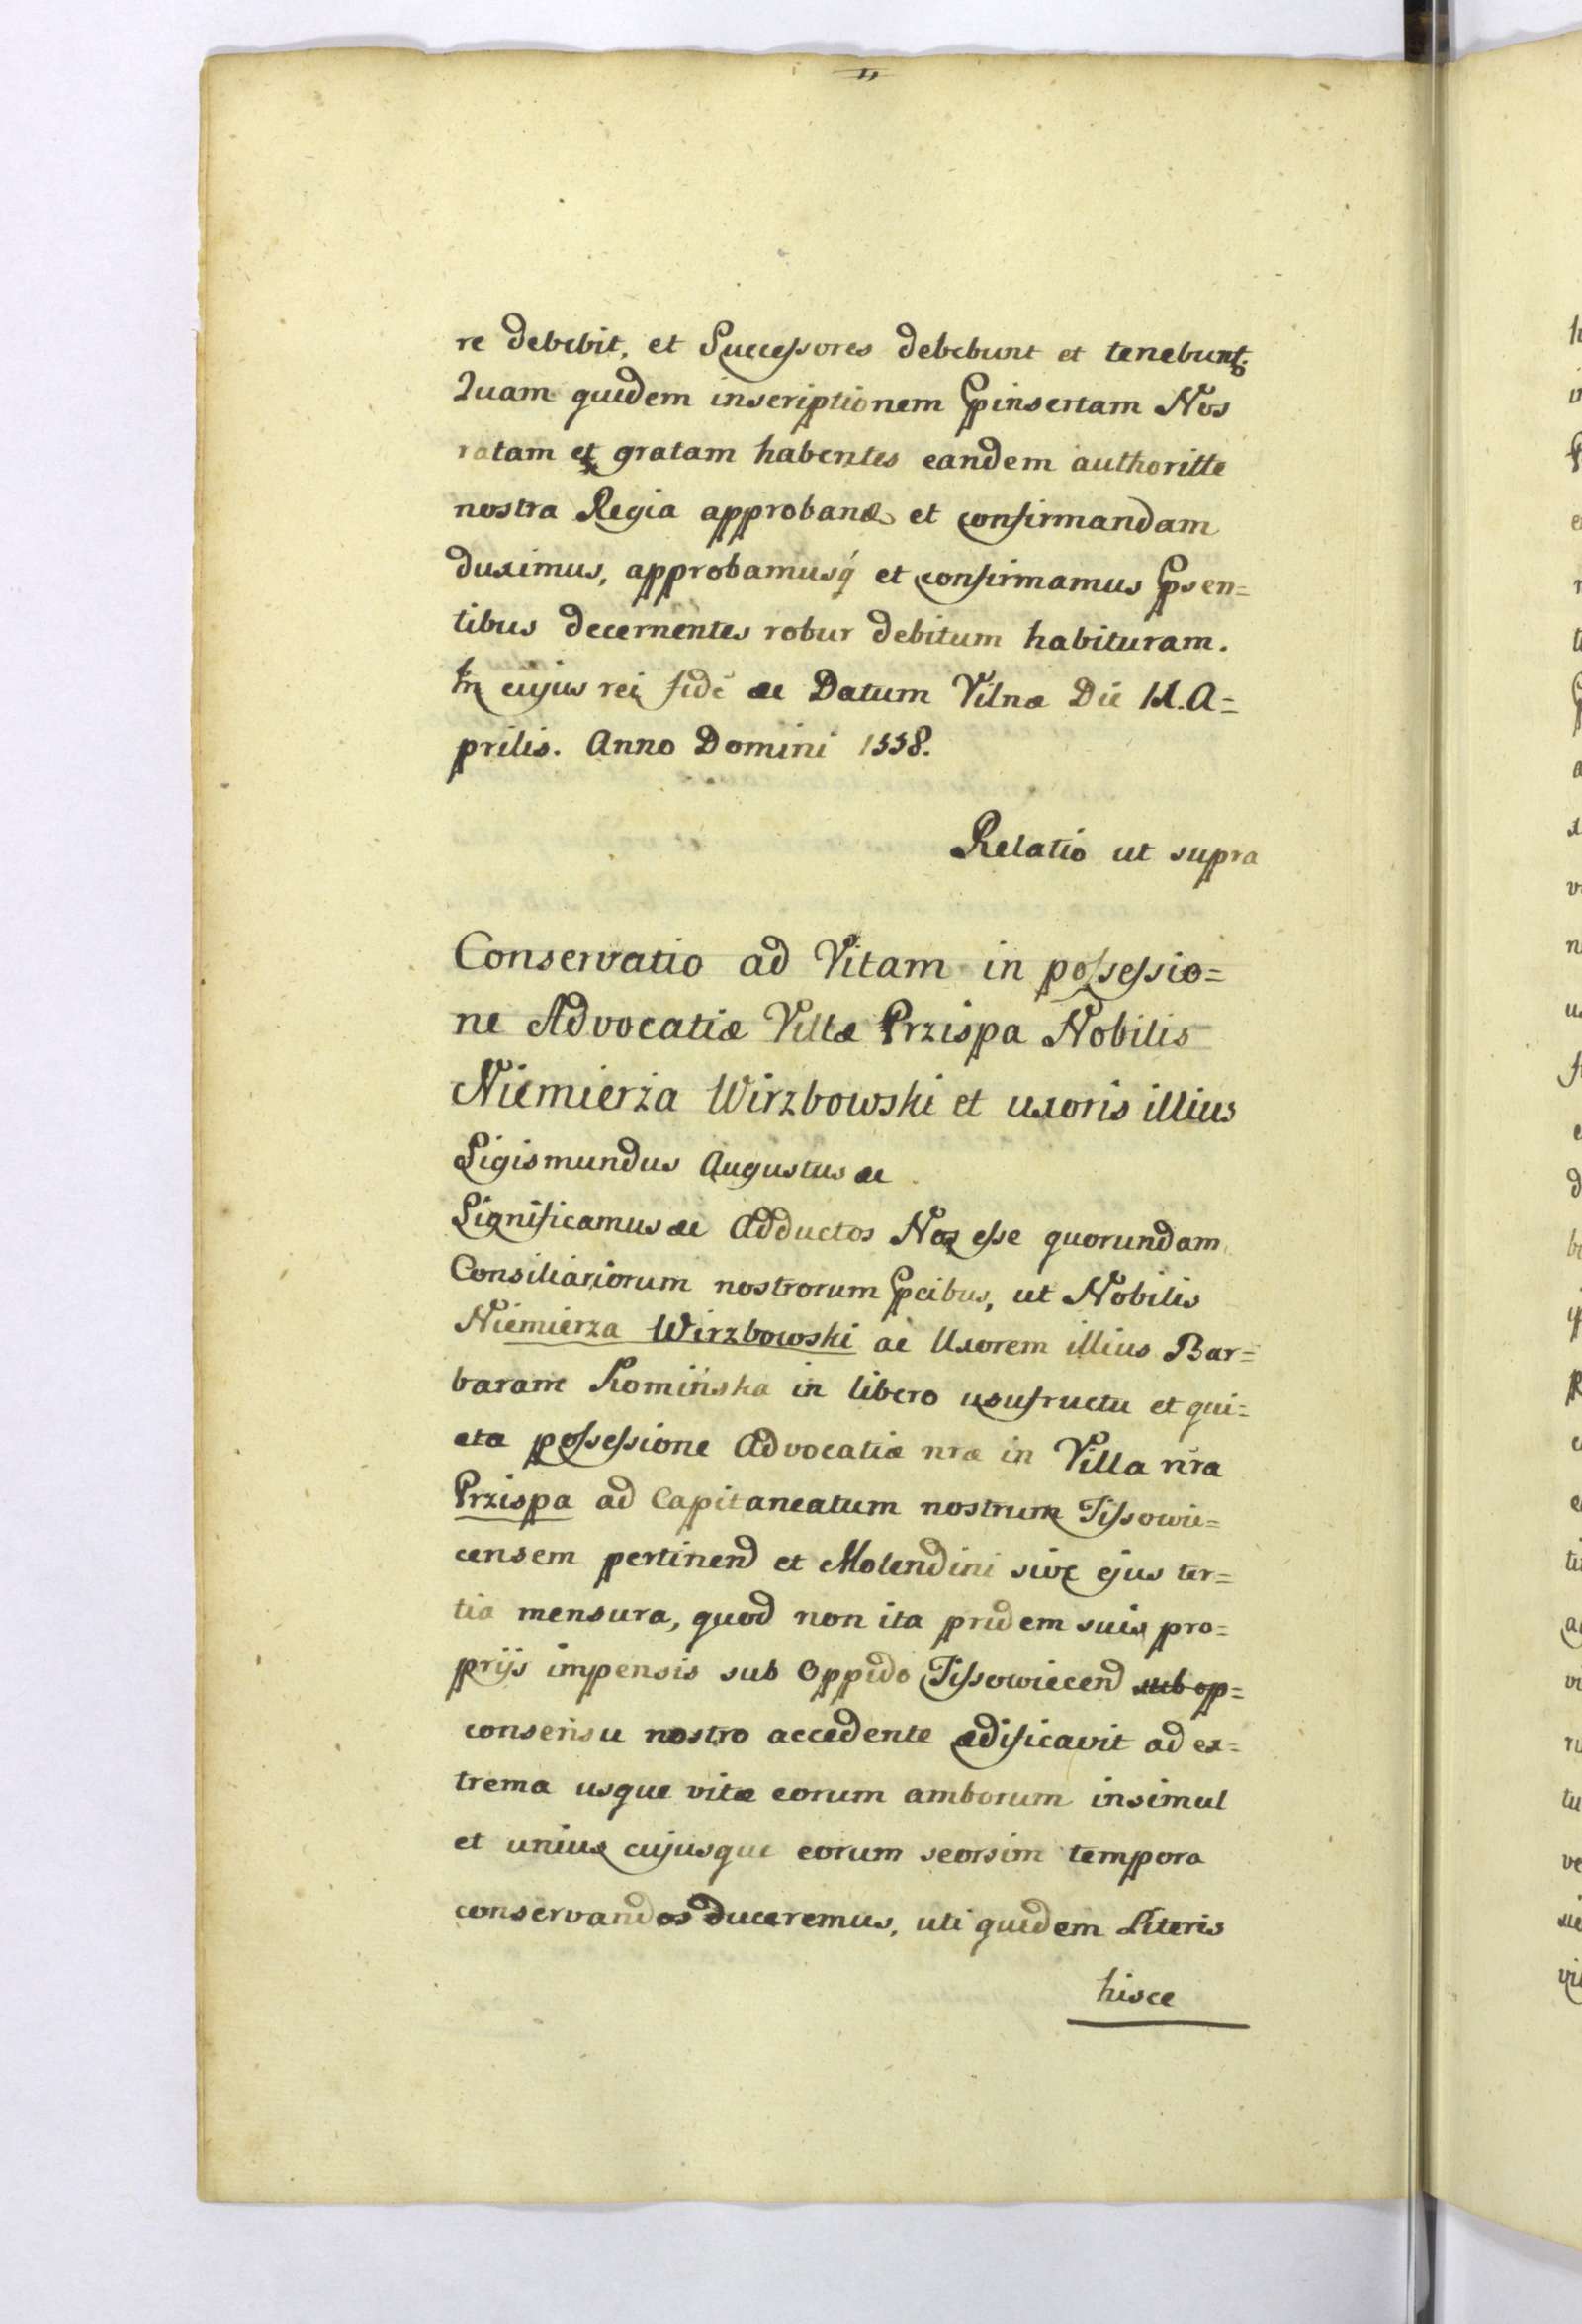 re debebit, et Successores debebunt et tenebunt;
Quam quidem inscriptionem Ppinsertam Nos
ratam et gratam habentes eandem authoritte
nostra Regia approband et confirmandam
duximus, approbamusq́ et confirmamus Ppsen=
tibus decernentes robur debitum habituram.
In cujus rei fidē ac Datum Vilnæ Die 11. A=
prilis. Anno Domini 1558.
Relatio ut supra
Conservatio ad Vitam in possessio=
ne Advocatiæ Villæ Przispa Nobilis
Niemierża Wirzbowski et uxoris illius
Sigismundus Augustus ac
Significamus ac Adductos Nos esse quorundam
Consiliariorum nostrorum Ppcibus, ut Nobilis
Niemierza Wirzbowski ac Uxorem illius Bar=
baram Komińska in libero usufructu et qui=
eta possessione Advocatiæ nræ in Villa nra
Przispa ad Capitaneatum nostrum Tissowie=
censem pertinend et Molendini sive ejus ter=
tia mensura, quod non ita pridem suis pro=
prijs impensis sub Oppido Tissowiecend sub op=
consensu nostro accedente ædificavit ad ex=
trema usque vitæ eorum amborum insimul
et unius cujusque eorum seorsim tempora
conservandos duceremus, uti quidem Literis
hisce